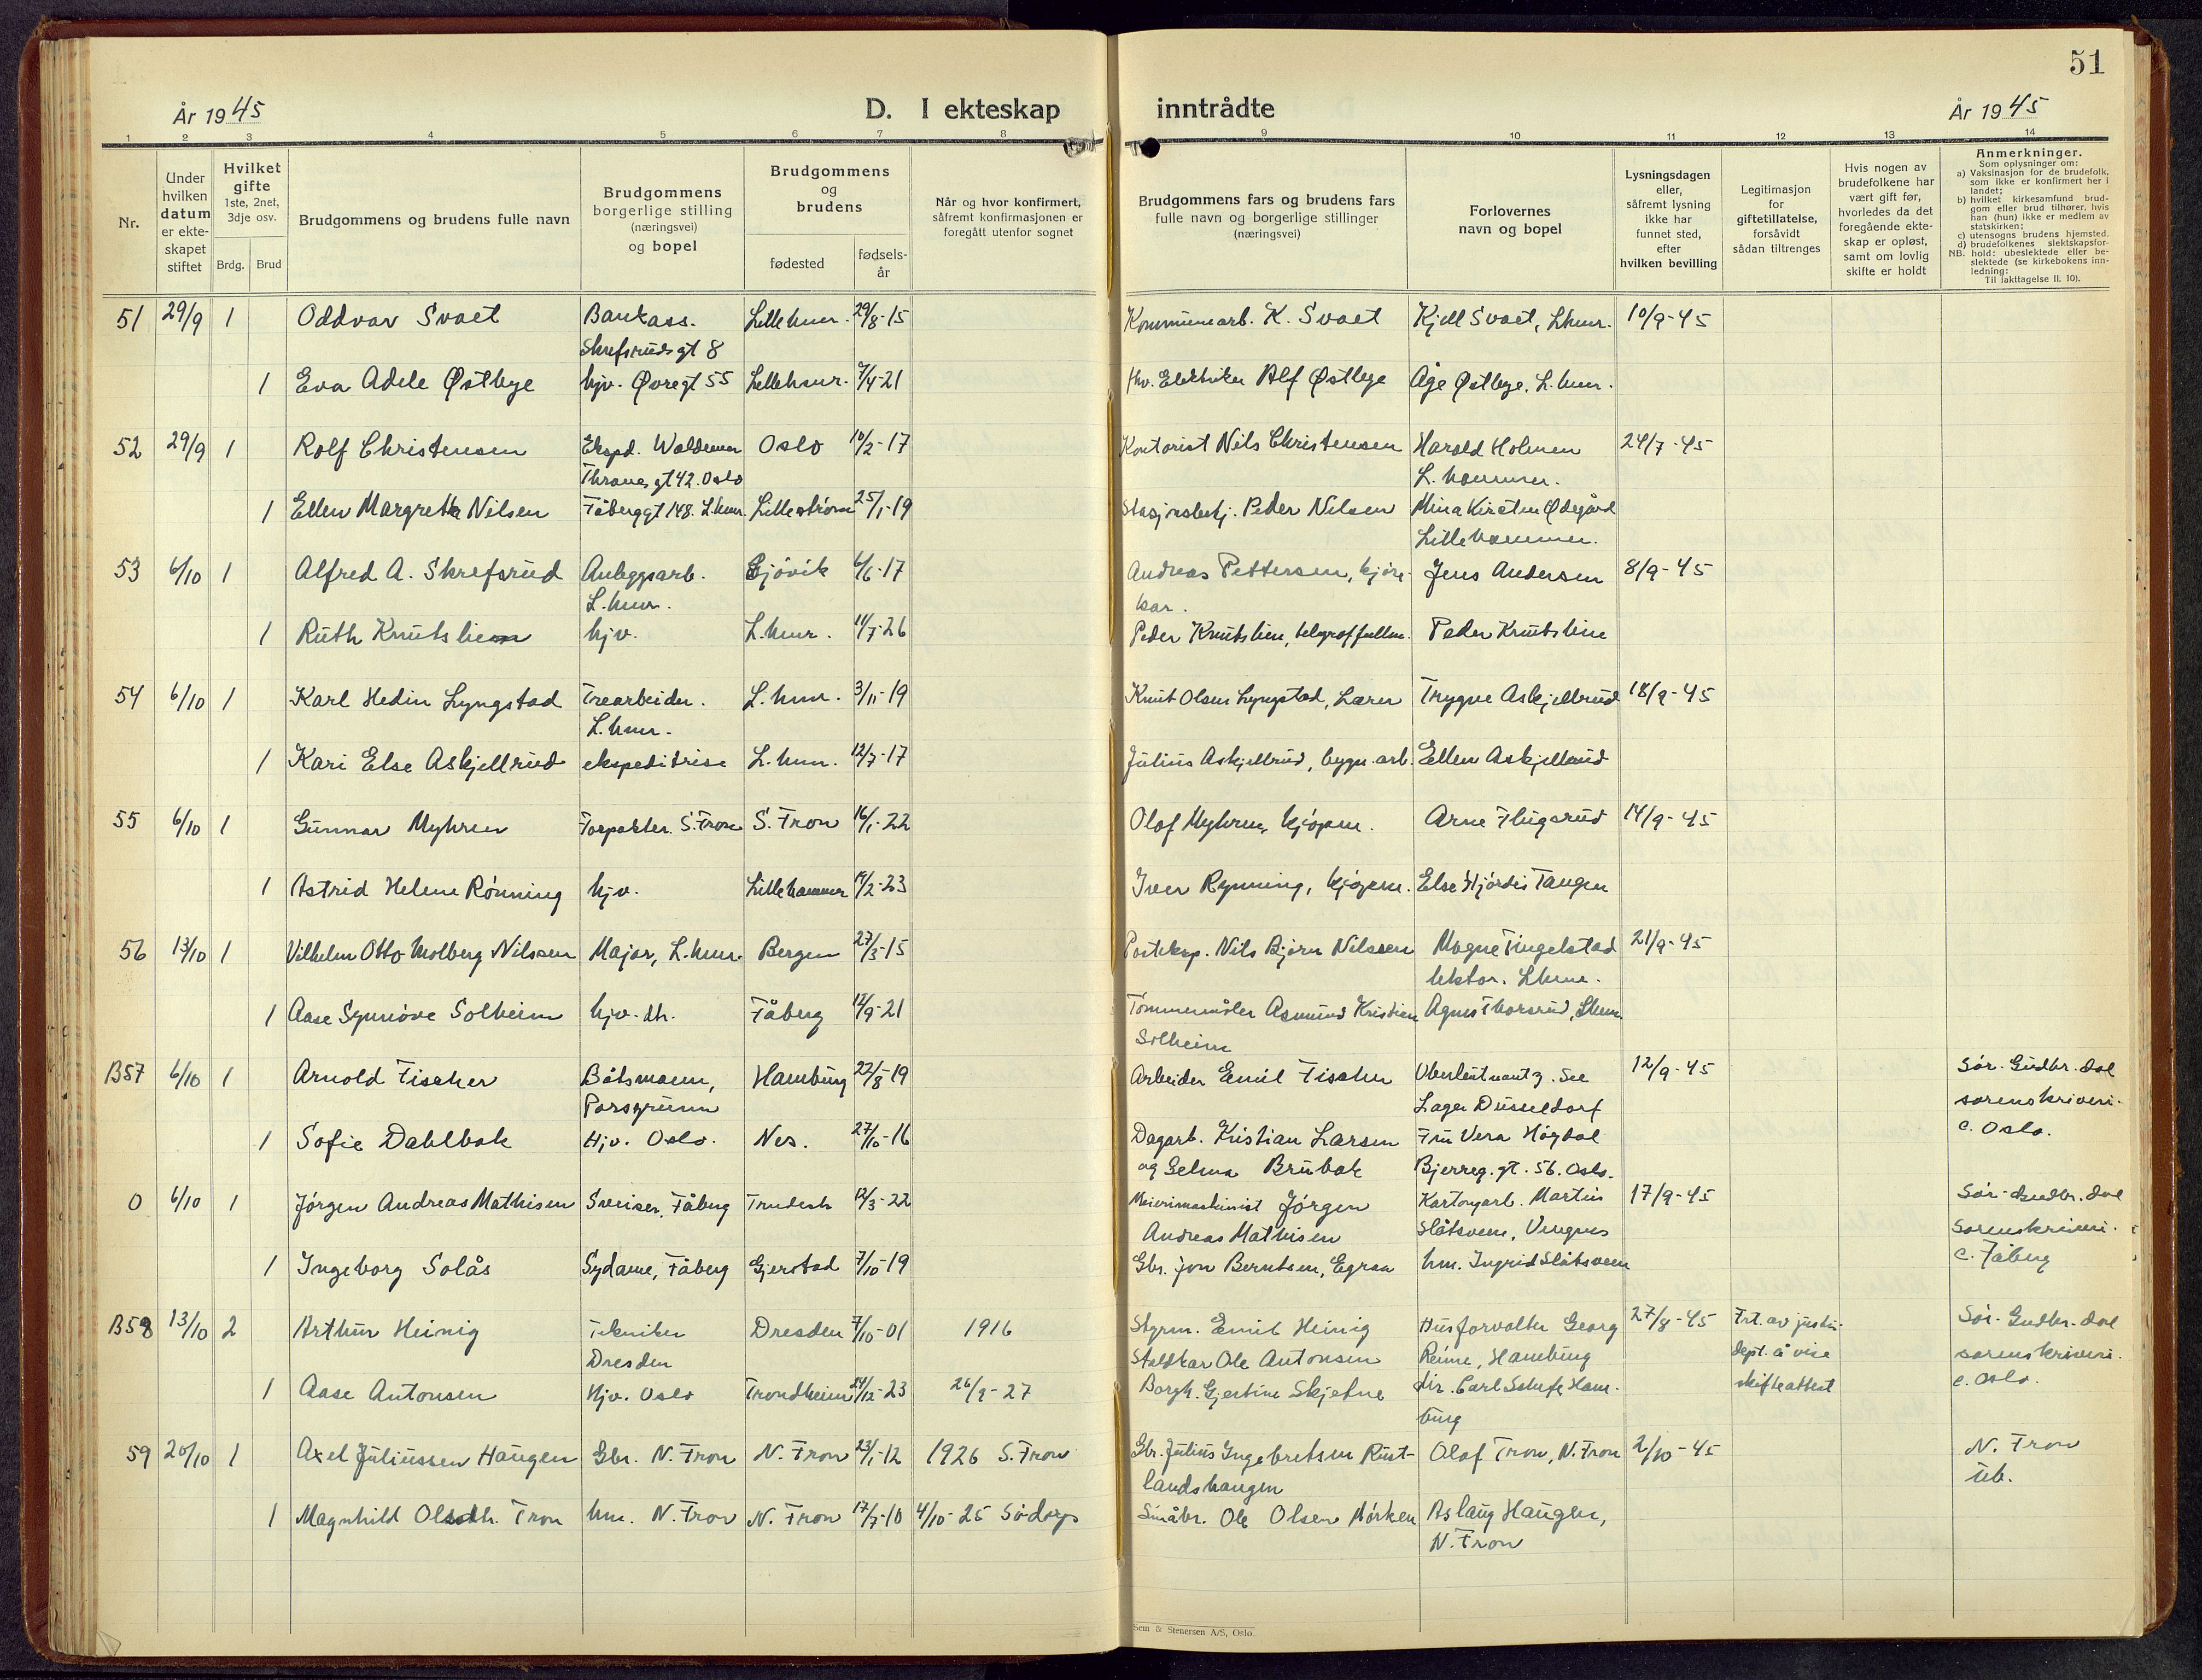 51
År 1945
D. I ekteskap inntrådte
År 1945
1 2 3 4 5 6 7 8 9 10 11 12 13 14
Nr.
Under hvilken datum er ekteskapet stiftet
Hvilket gifte 1ste, 2net, 3dje osv.
Brdg. Brud
Brudgommens og brudens fulle navn
Brudgommens borgerlige stilling (næringsvei) og bopel
Brudgommens og brudens
fødested
fødselsår
Når og hvor konfirmert, såfremt konfirmasjonen er foregått utenfor sognet
Brudgommens fars og brudens fars fulle navn og borgerlige stillinger (næringsvei)
Forlovernes navn og bopel
Lysningsdagen eller, såfremt lysning ikke har funnet sted, efter hvilken bevilling
Legitimasjon for giftetillatelse, forsåvidt sådan tiltrenges
Hvis nogen av brudefolkene har vært gift før, hvorledes da det foregående ekteskap er opløst, samt om lovlig skifte er holdt
Anmerkninger.
Som oplysninger om:
a) Vaksinasjon for de brudefolk, som ikke er konfirmert her i landet;
b) hvilket kirkesamfund brudgom eller brud tilhører, hvis han (hun) ikke er medlem av statskirken;
c) utensogns brudens hjemsted.
d) brudefolkenes slektskapsforhold: ubeslektede eller beslektede (se kirkebokens innledning:
NB.
Til iakttagelse II. 10).
51 29/9 1 Oddvar Svaet Bankass. Lillehmr. 29/8-15 Kommunearb. K. Svaet Kjell Svaet, Lhmr. 10/9-45
Skrefsrudsgt 8
1 Eva Adele Østbye hjv. Øvregt 55 Lillehmr. 7/4-21 Hv. Elektriker Alf Østbye Åge Østbye, L.hmr.
52 29/9 1 Rolf Christensen Ekspd. Waldemar Oslo 10/2-17 Kontorist Nils Christensen Harald Holmen 24/7-45
Thranes gt 42. Oslo L. hammer.
1 Ellen Margrete Nilsen Fåberggt 148. L.hmr. Lillestrøm 25/1-19 Stasjonsbetj. Peder Nilsen Mina Kirsten Ødegård
Lillehammer.
53 6/10 1 Alfred A. Skrefsrud Anleggsarb. Gjøvik 6/6-17 Andreas Pettersen, kjøre- Jens Andersen 8/9-45
L.hmr. kar.
1 Ruth Knutslien hjv. L.hmr. 11/7-26 Peder Knutslien, telegraffullm. Peder Knutslien
54 6/10 1 Karl Hedin Lyngstad Trearbeider. L.hmr. 3/11-19 Knut Olsen Lyngstad, Lærer Trygve Askjellrud 18/9-45
L.hmr.
1 Kari Else Askjellrud ekspeditrise L.hmr. 12/7-17 Julius Askjellrud, bygn.arb. Ellen Askjellrud
55 6/10 1 Gunnar Myhren Forpakter. S.Fron S. Fron 16/1-22 Olaf Myhren, kjøpm. Arne Flugsrud 14/9-45
1 Astrid Helene Rønning hjv. Lillehammer 14/2-23 Iver Rynning, kjøpm. Else Hjørdis Tangen
56 13/10 1 Vilhelm Otto Molberg Nilssen Major, L.hmr. Bergen 27/3-15 Posteksp. Nils Bjørn Nilssen Magne Tingelstad 21/9-45
lektor. Lhmr.
1 Aase Synnøve Solheim hjv. dtr. Fåberg 12/9-21 Tømmermåler Asmund Kristian Agnes Thorsrud, Lhmr.
Solheim
B57 6/10 1 Arnold Fischer Båtsmann, Hamburg 22/8-19 Arbeider Emil Fischer Oberleutnant z. See 12/9-45 Sør-Gudbr.dal
Porsgrunn Lager Düsseldorf sorenskriveri.
1 Sofie Dahlbak Hjv. Oslo. Nes. 27/10-16 Dagarb. Kristian Larsen Fru Vera Høgdal c. Oslo.
og Selma Brubak Bjerreg.gt. 56. Oslo.
0 6/10 1 Jørgen Andreas Mathisen Sveiser, Fåberg 12/3-22 Meierimaskinist Jørgen Kartongarb. Martin 17/9-45 Sør-Gudbr.dal
Andreas Mathisen Slåtsveen, Vingnes sorenskriveri.
1 Ingeborg Solås Sydame, Fåberg Gjerstad 7/10-19 Gbr. Jon Berntsen, hm. Ingrid Slåtsveen c. Fåberg
B58 13/10 2 Arthur Heinig Tekniker Dresden 7/10-01 1916 Styrm. Emil Heinig Husforvalter Georg 27/8-45 Frt. av justis- Sør-Gudbr.dal
Dresden Staldkar Ole Antonsen Hamburg dept. å vise sorenskriveri.
1 Aase Antonsen Hjv. Oslo Trondheim 24/12-23 26/9-27 Borgh. Gjertine Skjefne dir. Carl Ham- skifteattest c. Oslo.
burg
59 20/10 1 Axel Juliussen Haugen Gbr. N. Fron N. Fron 23/1-12 1926 S. Fron Gbr. Julius Ingebretsen Rust- Olaf Tron, N. Fron 2/10-45 N. Fron
landshaugen ub.
1 Magnhild Olsdtr. Tron hm. N. Fron N. Fron 17/7-10 4/10-25 Sødorp Småbr. Ole Olsen Mørken Aslaug Haugen,
N. Fron
Sem & Stenersen A/S, Oslo.